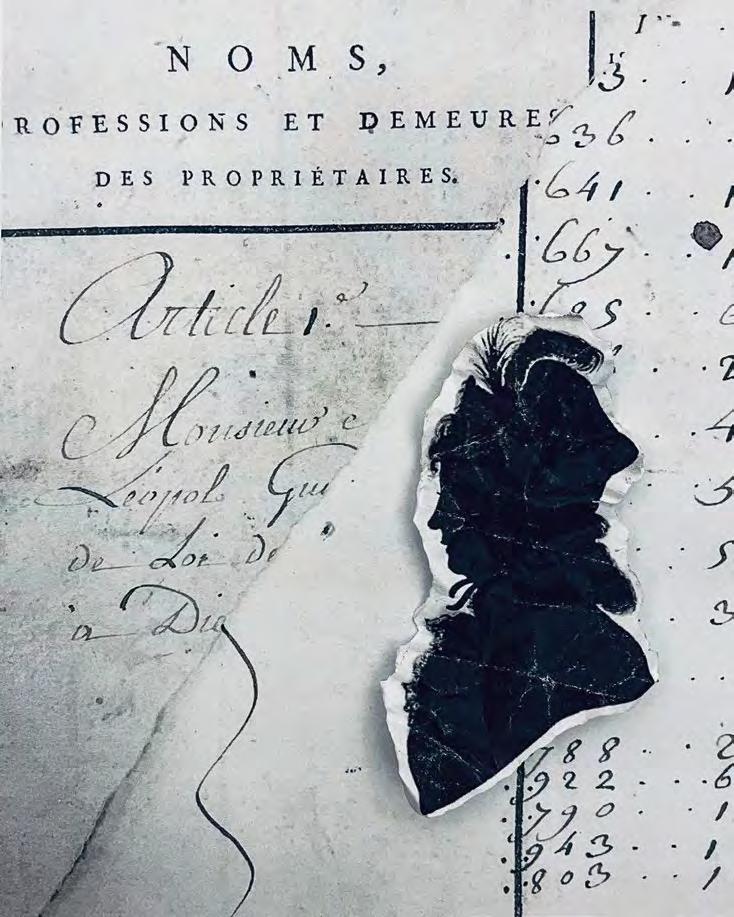 NOMS,
ROFESSIONS ET DEMEURES
DES PROPRIÉTAIRES.
Article 1.er
Monsieur
Léopol Gui
de Loi de
à Die
3
636
641
667
695
788 2
922 6
790 1
943 1
803 1
2
4
5
5
3